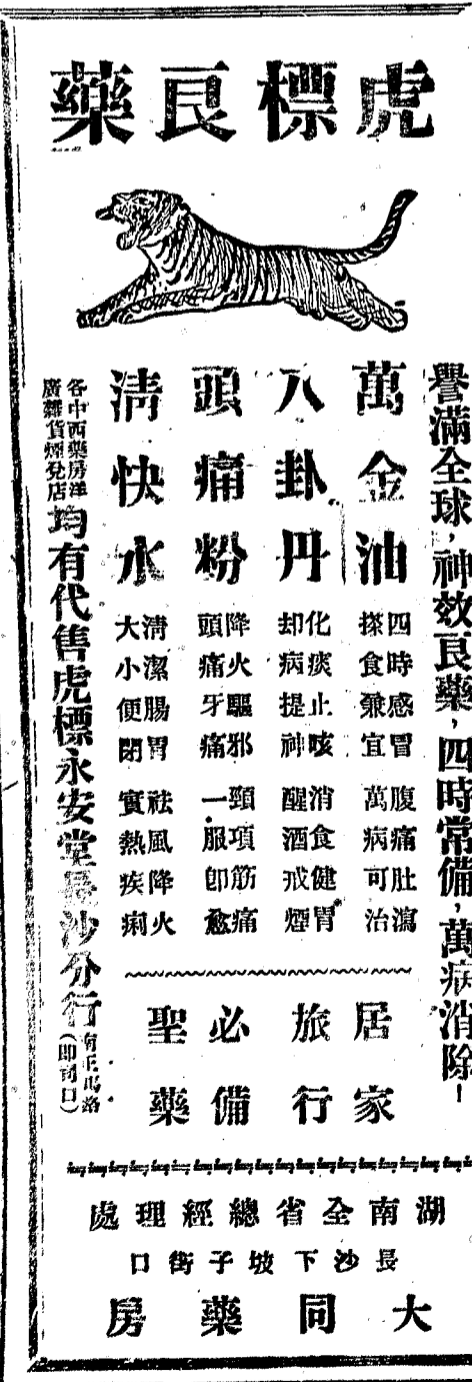 虎標良藥
譽滿全球，神效良藥，四時常備，萬病消除！
萬金油
四時感冒 腹痛肚瀉
搽食兼宜 萬病可治
八卦丹
化痰止咳 消食健胃
却病提神 醒酒戒煙
頭痛粉
降火驅邪 頸項筋痛
頭痛牙痛 一服卽愈
淸快水
淸潔腸胃 祛風降火
大小便閉 實熱疾痢
各中西藥房洋
廣雜貨煙兌店
均有代售虎標永安堂長沙分行
南正馬路
（即司門口）
居家旅行
必備聖藥
湖南全省總經理處
長沙下坡子街口
大同藥房